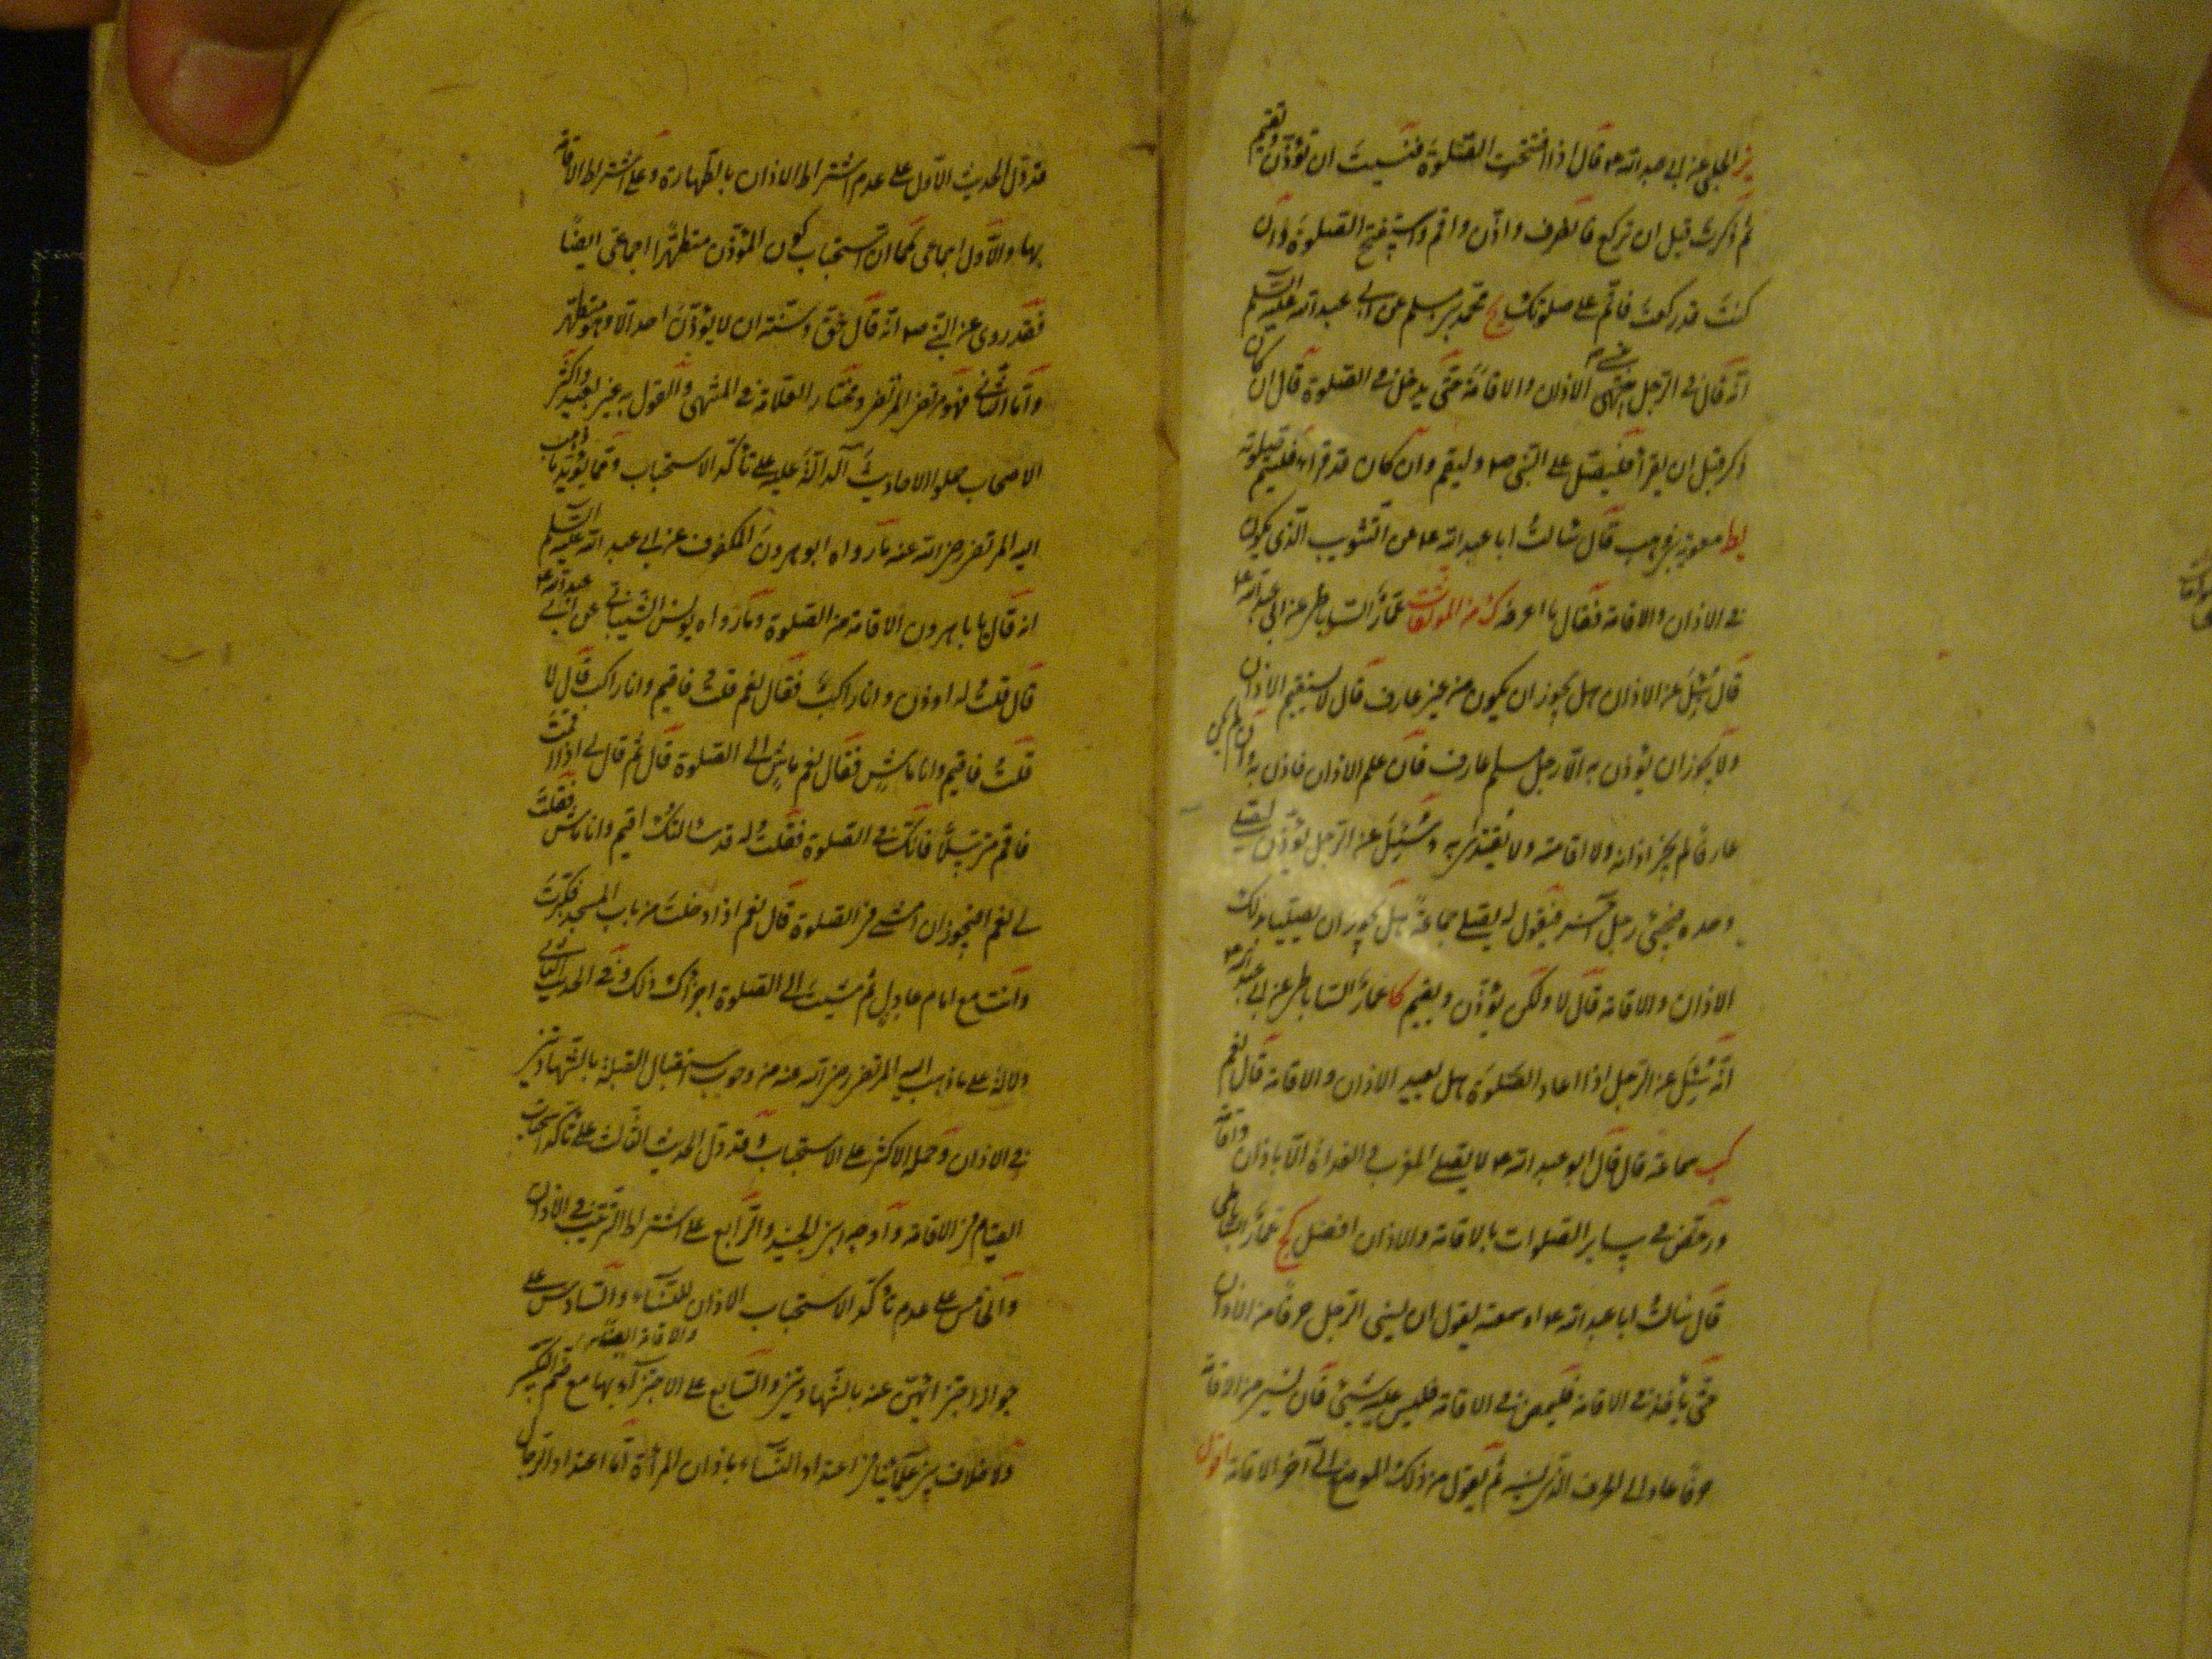 يز الحلبي عن ابي عبد الله ع قال اذا افتتحت الصلوة فنسيت ان تؤذن وتقيم
ثم ذكرت قبل ان تركع فانصرف واذن واقم واستفتح الصلوة وان
كنت قد ركعت فاتم على صلوتك يح محمد بن مسلم عن ابي عبد الله عليه السلم
انه قال في الرجل ينسى الاذان والاقامة حتى يدخل في الصلوة قال ان كان
ذكر قبل ان يقرأ فليصل على النبي ص وليقم وان كان قد قرأ فليتم صلوته
يط معوية بن وهب قال سألت ابا عبد الله ع عن التثويب الذي يكون
في الاذان والاقامة فقال ما نعرفه ك من الموثقات عمار الساباطي عن ابي عبد الله ع
قال سئل عن الاذان هل يجوز ان يكون من غير عارف قال لا يستقيم الاذان
ولا يجوز ان يؤذن به الا رجل مسلم عارف فان علم الاذان فاذن به وان لم يكن
عارفا لم يجز اذانه ولا اقامته ولا يقتدى به وسئل عن الرجل يؤذن ويقيم ليصلي
وحده فيجيء رجل آخر فيقول له يصلي جماعة هل يجوز ان يصليا بذلك
الاذان والاقامة قال لا ولكن يؤذن ويقيم كا عمار الساباطي عن ابي عبد الله ع
انه سئل عن الرجل اذا اعاد الصلوة هل يعيد الاذان والاقامة قال نعم
كب سماعة قال قال ابو عبد الله ع لا يصلي المغرب و الغداة الا باذان واقامة
ورخص في ساير الصلوات بالاقامة والاذان افضل كج عمار الساباطي
قال سألت ابا عبد الله ع او سمعته يقول ان نسي الرجل حرفا من الاذان
حتى يأخذ في الاقامة فليمض في الاقامة فليس عليه شيء فان نسي من الاقامة
حرفا عاد الى الحرف الذي نسيه ثم يقول من ذلك الموضع الى آخر الاقامة اقول
قد دل الحديث الاول على عدم اشتراط الاذان بالطهارة وعلى اشتراط الاقامة
بها والاول اجماعي كما ان استحباب كون المؤذن متطهرا اجماعي ايضا
فقد روى عن النبي ص انه قال حق وسنة ان لا يؤذن احد الا وهو متطهر
واما الثاني فهو مرتضى المرتضى ومختار العلامة في المنتهى والقول به غير بعيد واكثر
الاصحاب حملوا الاحاديث الدالة عليه على تأكد الاستحباب ومما يؤيد ما ذهب
اليه المرتضى رضي الله عنه ما رواه ابو هرون المكفوف عن ابي عبد الله عليه السلم
انه قال يا با هرون الاقامة من الصلوة وما رواه يونس الشيباني عن ابي عبد الله ع
قال قلت له اوذن وانا راكب فقال نعم قلت فاقيم وانا راكب قال لا
قلت فاقيم وانا ماش فقال نعم ماش الى الصلوة قال ثم قال لي اذا اقمت
فاقم مترسلا فانك في الصلوة فقلت له قد سألتك اقيم وانا ماش فقلت
لي نعم افيجوز ان امشي في الصلوة قال نعم اذا دخلت من باب المسجد فكبرت
وانت مع امام عادل ثم مشيت الى الصلوة اجزأك ذلك وفي الحديث الثاني
دلالة على ما ذهب اليه المرتضى رضي الله عنه من وجوب استقبال القبلة بالشهادتين
في الاذان وحمله الاكثر على الاستحباب وقد دل الحديث الثالث على تأكد استحباب
القيام في الاقامة واوجبه ابن الجنيد والرابع على اشتراط الترتيب في الاذان
والاقامة ايضا
والخامس على عدم تأكد الاستحباب الاذان للنساء والسادس على
جواز اجتزائهن عنه بالشهادتين والسابع على الاجتزاء بهما مع ضم التكبير
ولا خلاف بين علمائنا في اعتداد النساء باذان المرأة اما اعتداد الرجال